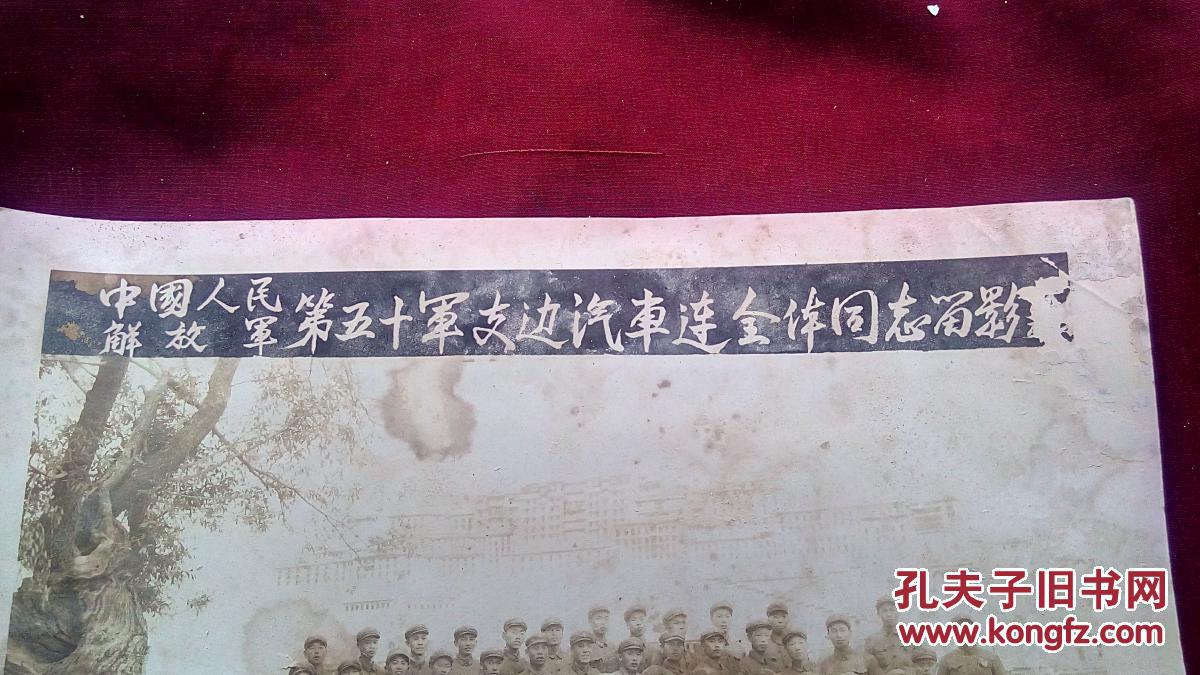 中國人民
解放軍
第五十軍支边汽車连全体同志留影
孔夫子旧书网
www.kongfz.com